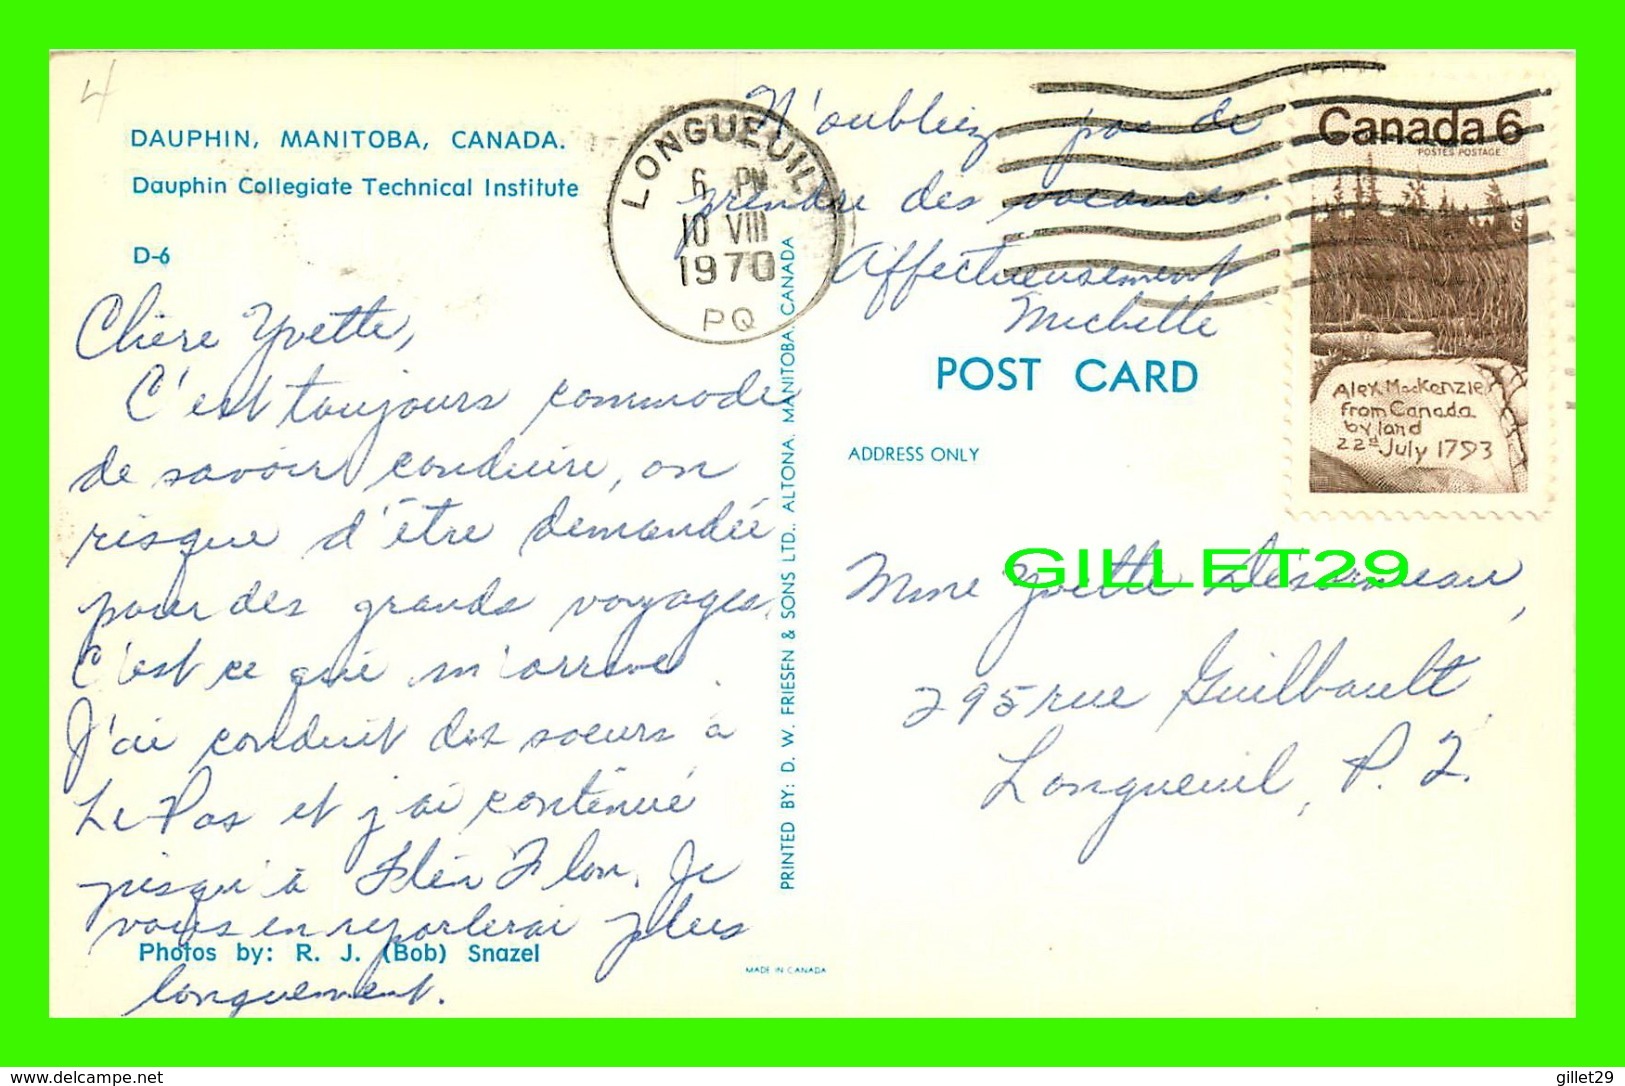 4
DAUPHIN, MANITOBA, CANADA.
Dauphin Collegiate Technical Institute
D-6
Chère Yvette,
C'est toujours commode
de savoir conduire, on
risque d'être demandée
pour des grands voyages,
C'est ce qui m'arrive.
J'ai conduit des soeurs à
Le Pas et j'ai continué
jusqu'à Flin Flon. Je
vous en reporlerai plus
longuement.
Photos by: R. J. (Bob) Snazel
LONGUEUIL
6 PM
10 VIII
1970
PQ
N'oubliez pas de
prendre des vacances.
Affectueusement
Michelle
PRINTED BY: D. W. FRIESEN & SONS LTD., ALTONA, MANITOBA, CANADA
MADE IN CANADA
POST CARD
ADDRESS ONLY
Canada 6
POSTES POSTAGE
Alex MacKenzie
from Canada
by land
22d July 1793
GILLET29
Mme Yvette
295 rue Guilbault,
Longueuil, P. Q.
delcampe.net
gillet29